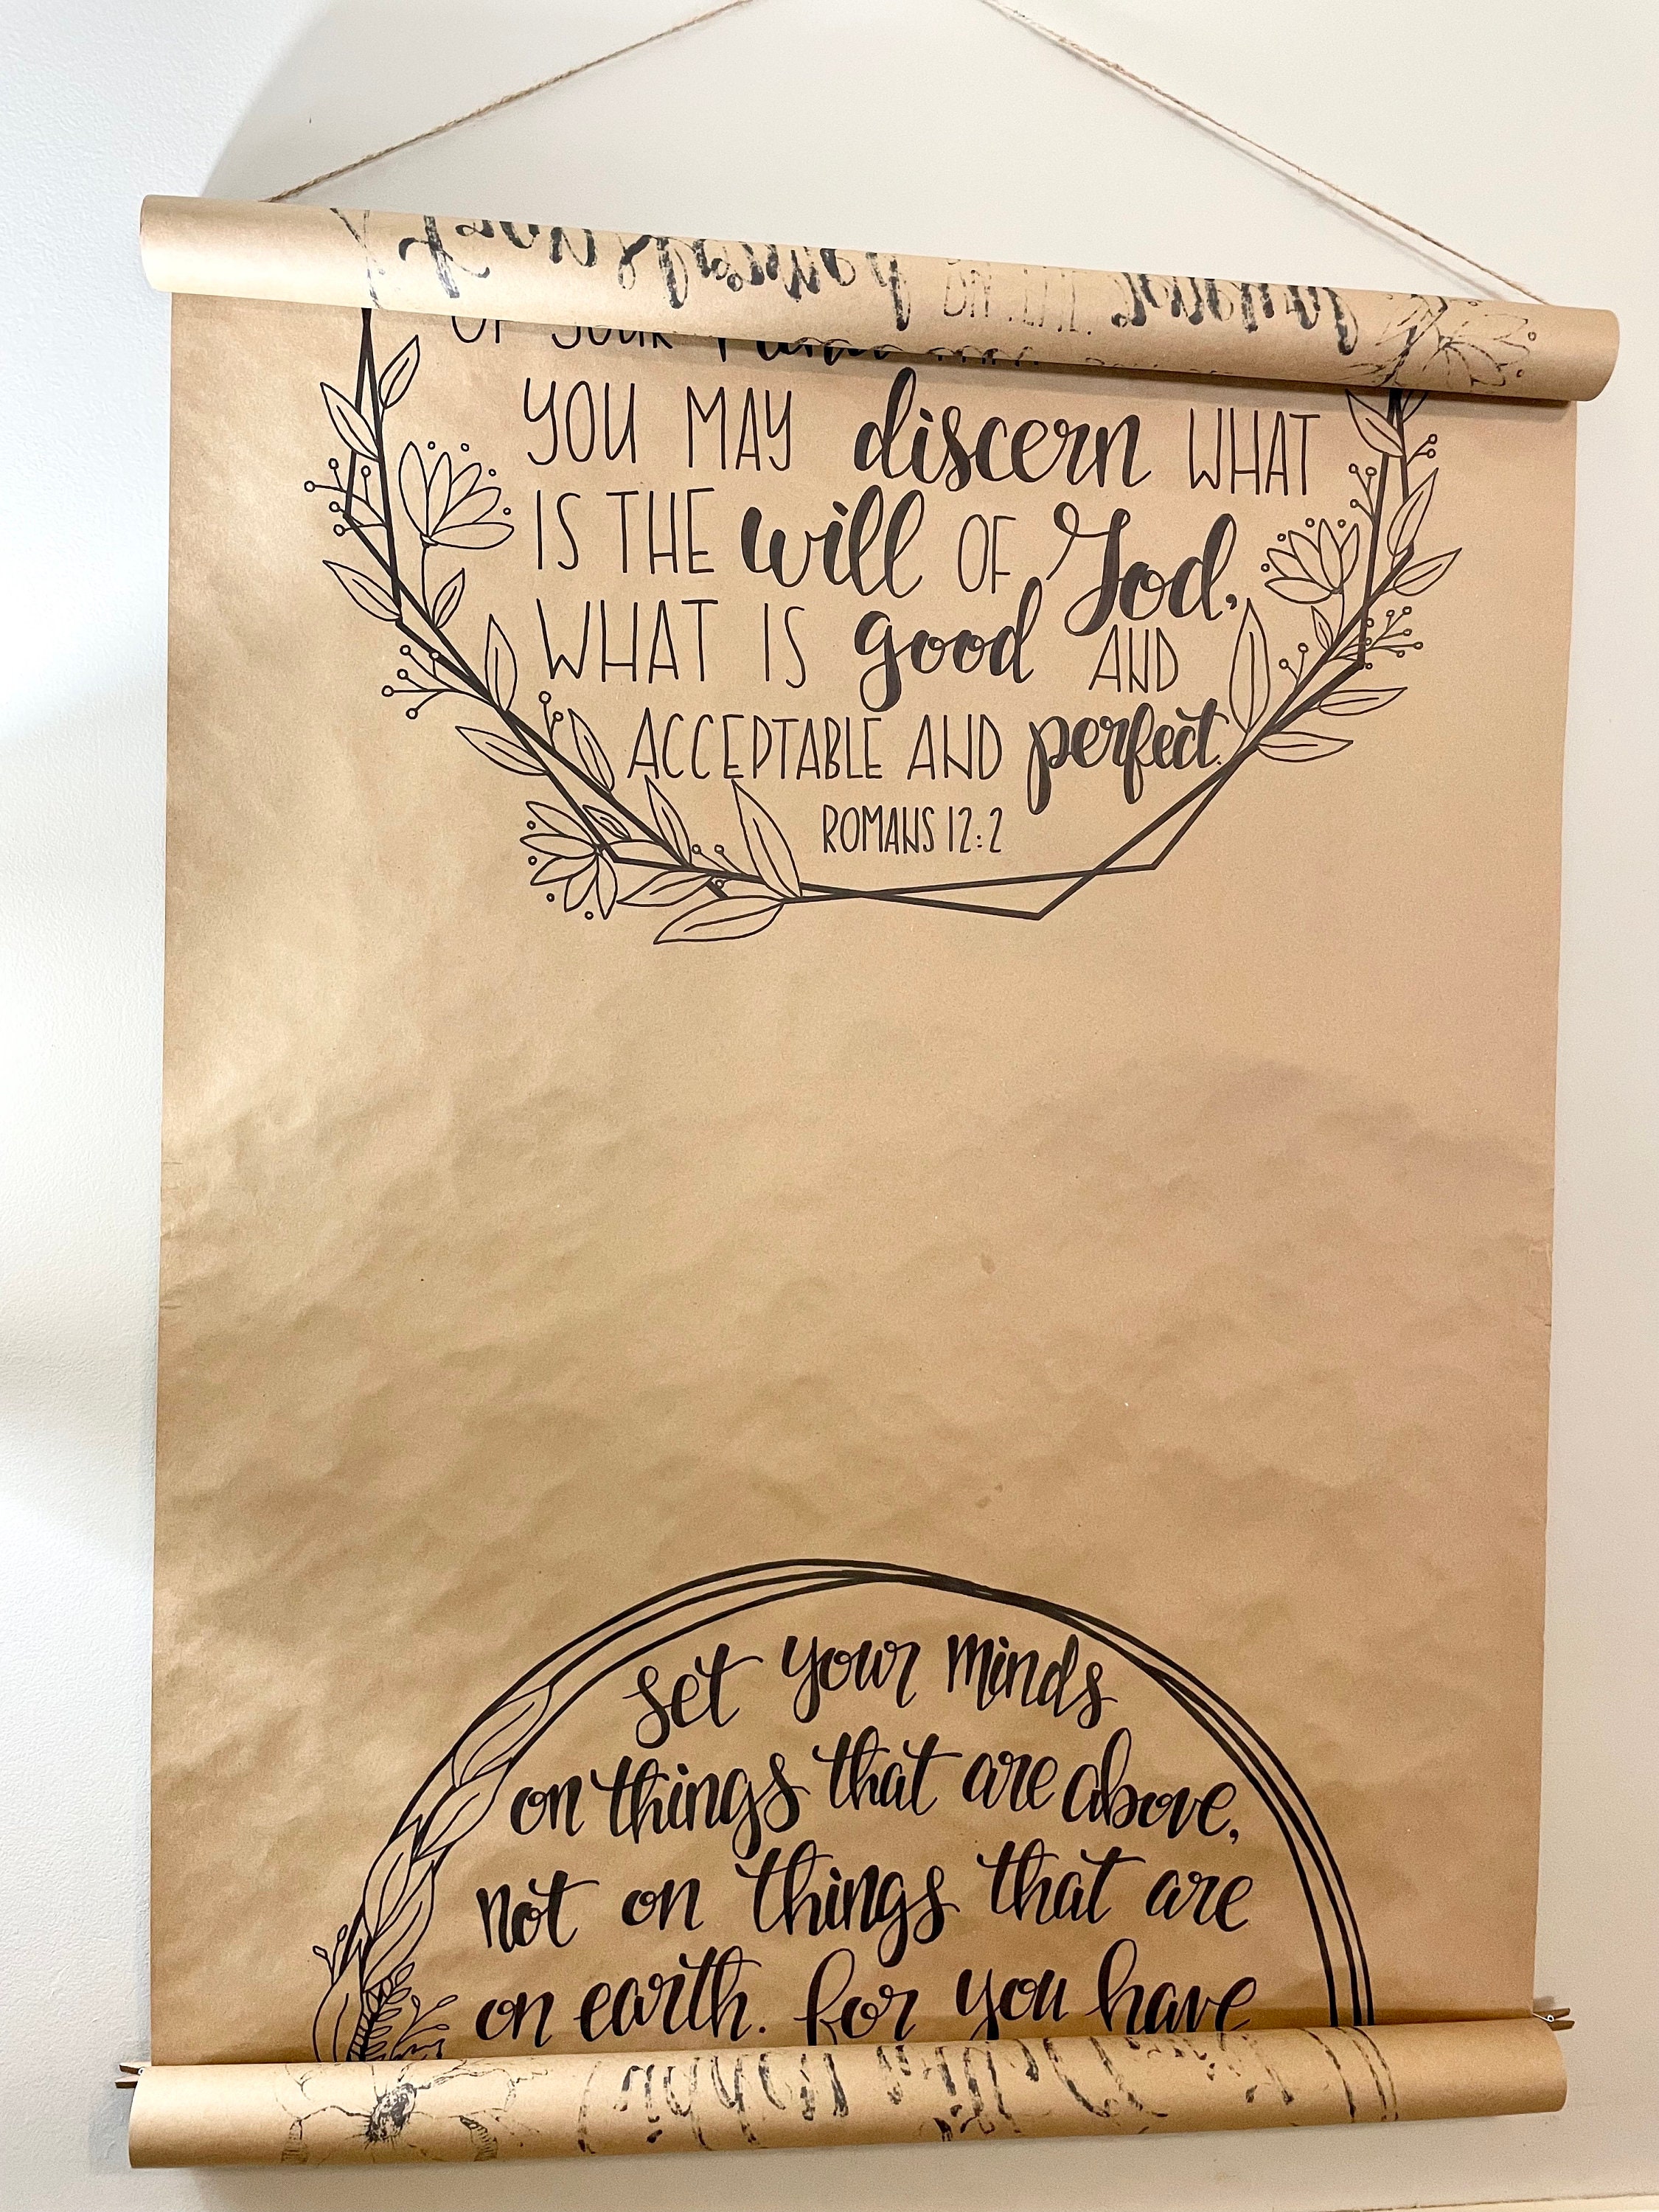 transformed by the renewal
of your
YOU MAY discern WHAT
IS THE will OF God,
WHAT IS good AND
ACCEPTABLE AND perfect.
ROMANS 12:2
set your minds
on things that are above,
not on things that are
on earth. for you have